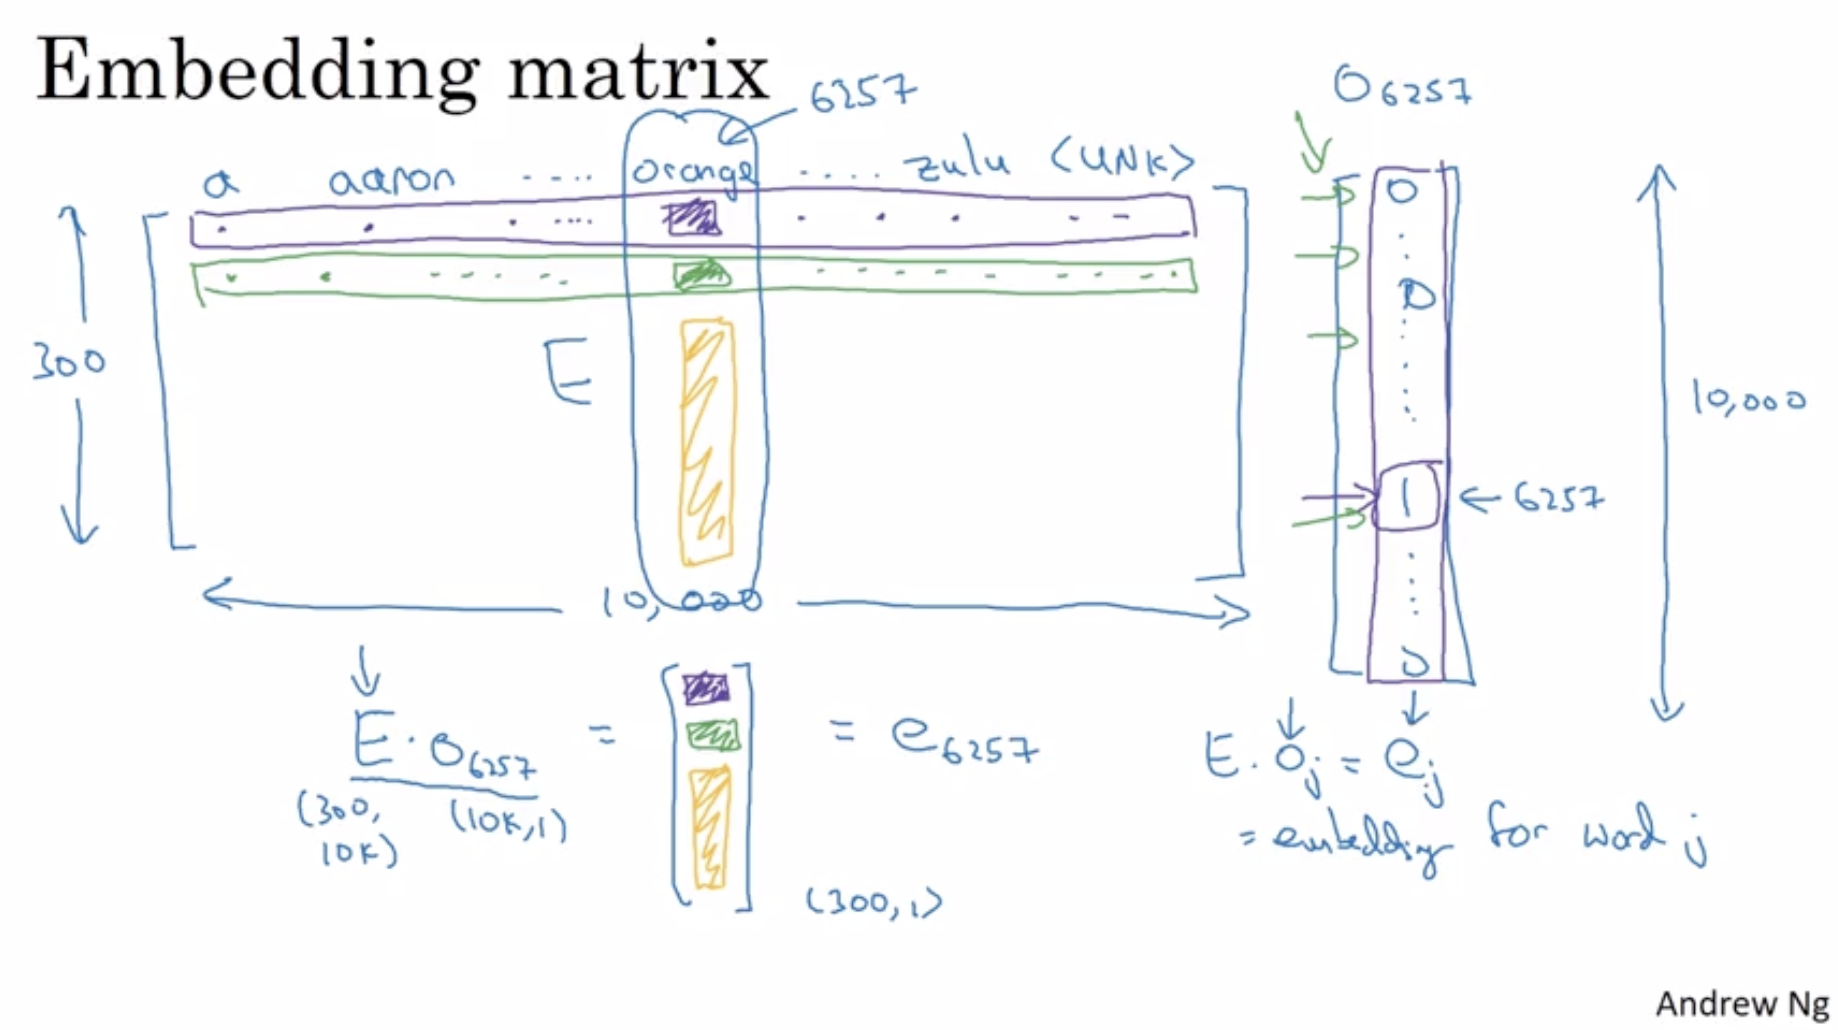 Embedding matrix
6257
O6257
a aaron ..... orange ..... zulu <UNK>
0
0
300
E
10,000
1 ← 6257
10,000
0
E · O6257 = = e6257
(300, 10K) (10K,1)
(300,1)
E · Oj = ej
= embedding for word j
Andrew Ng